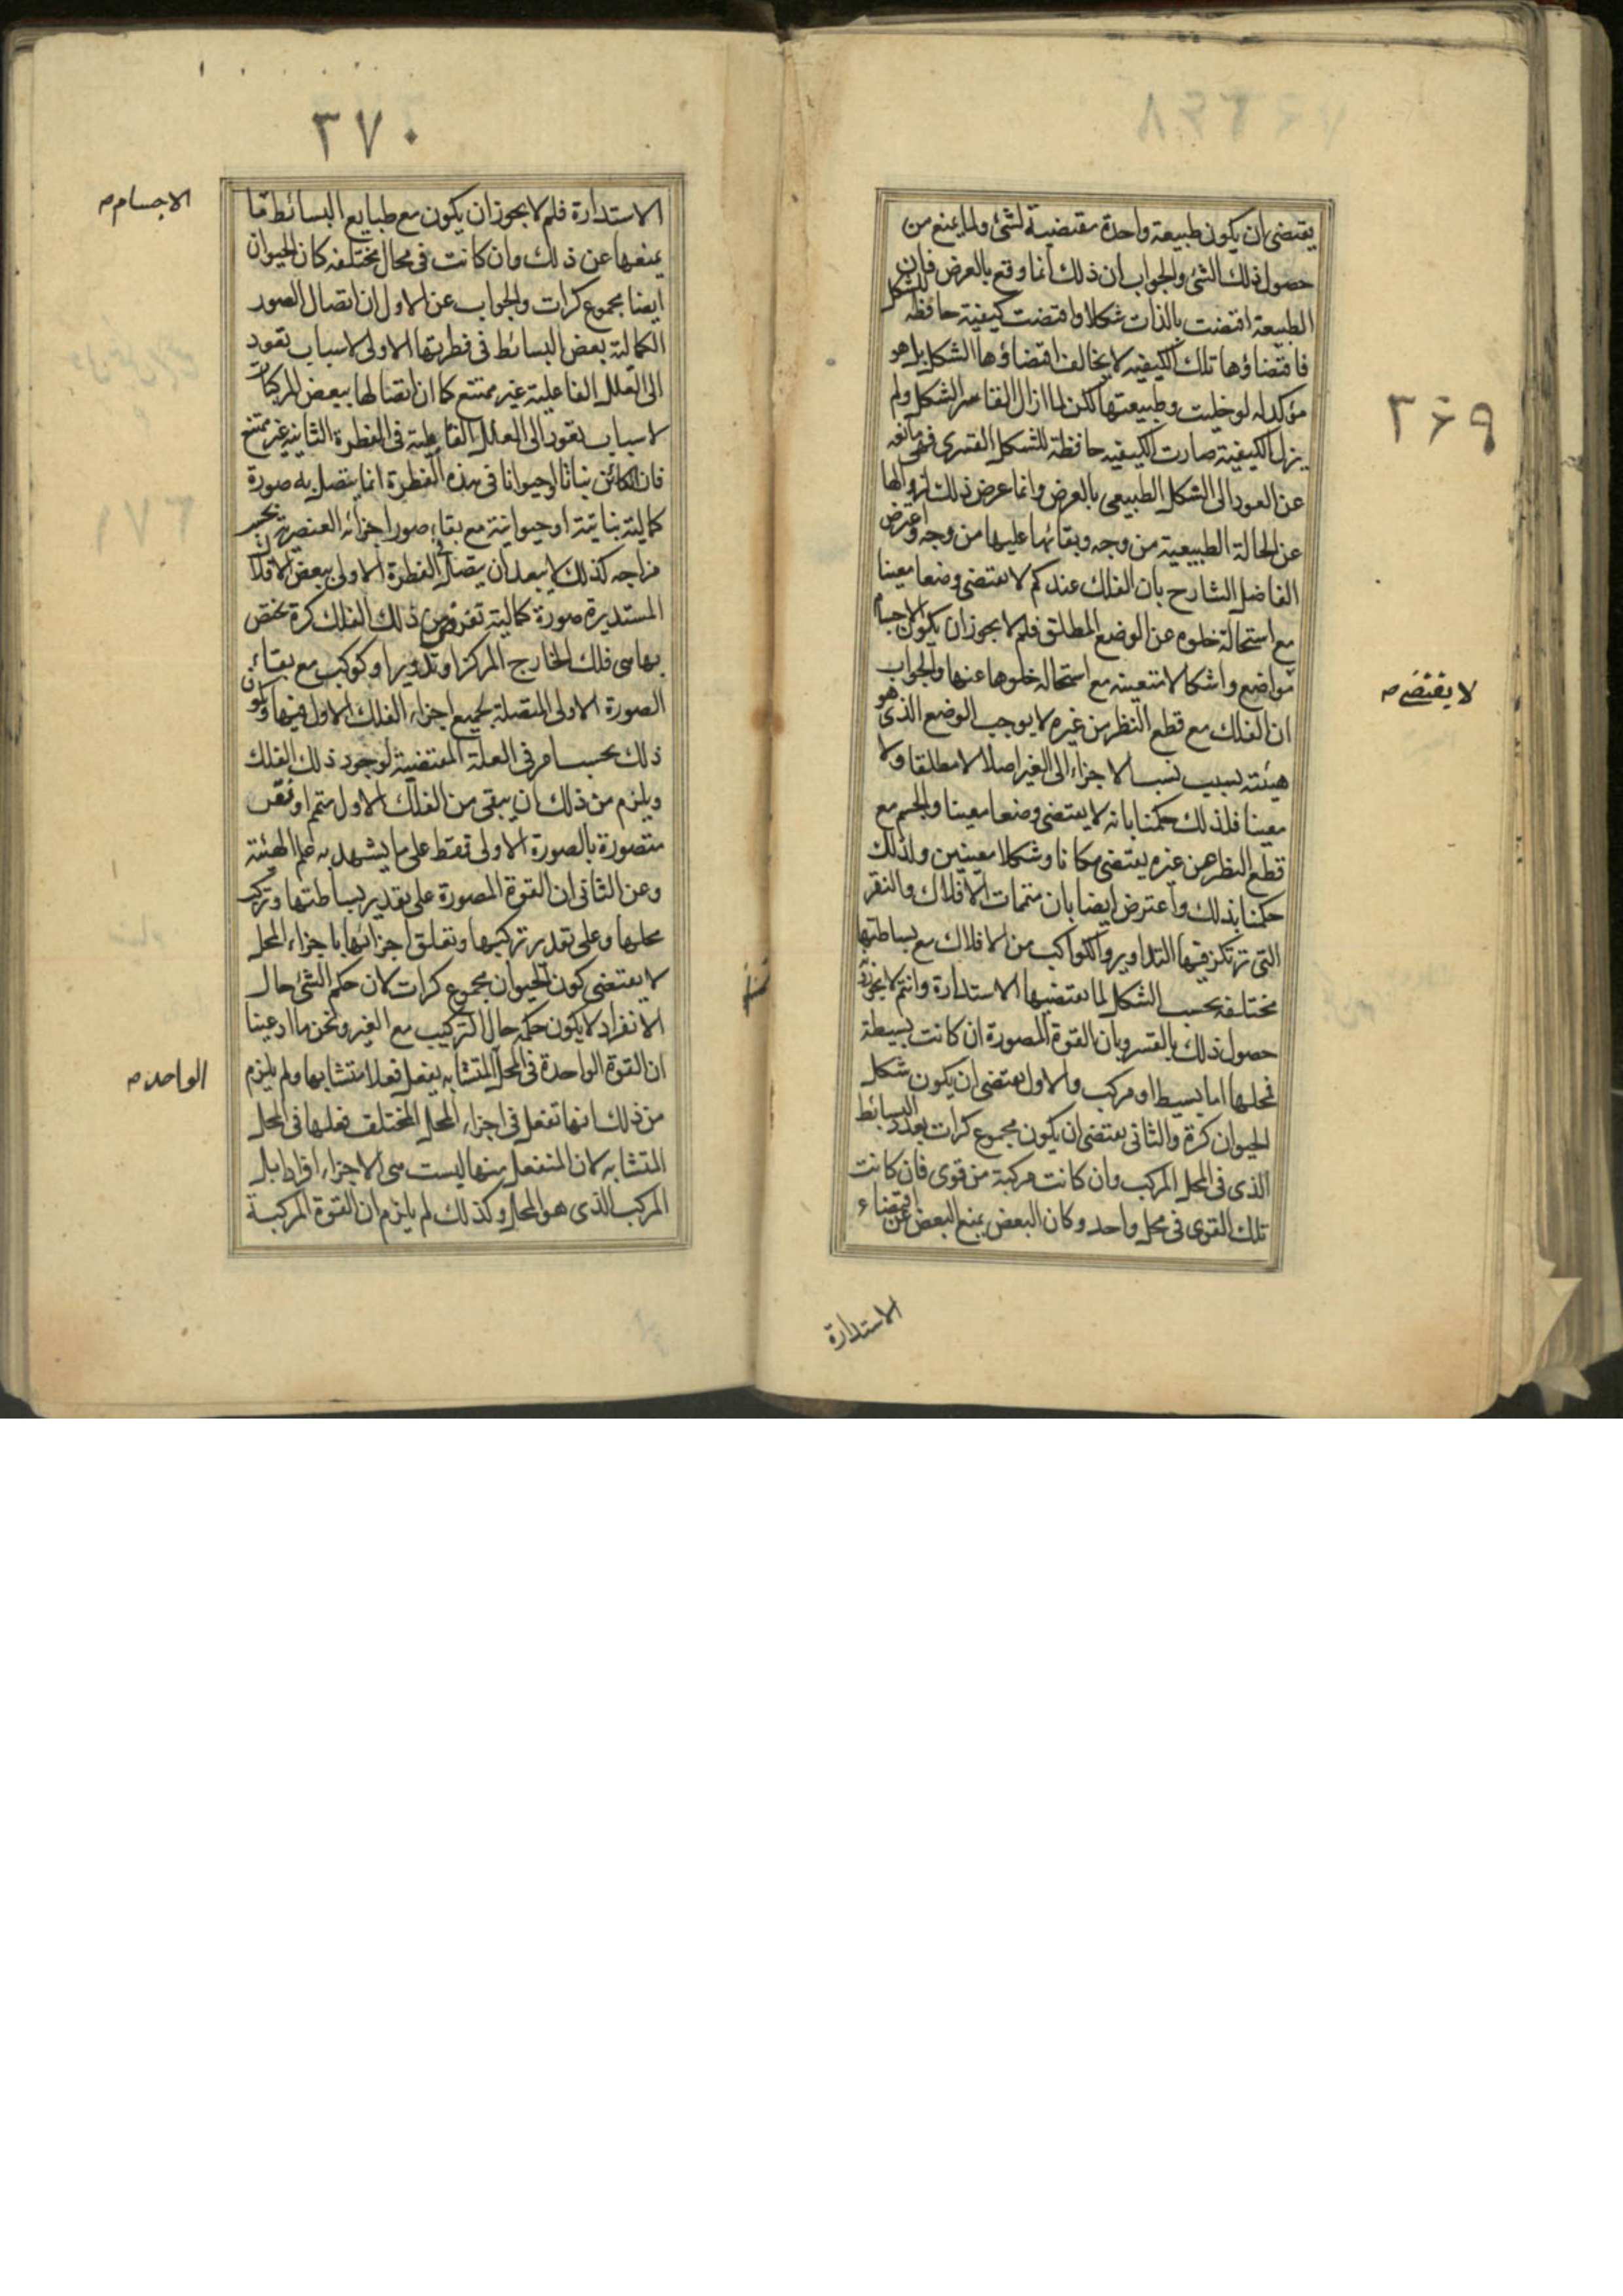 ٣۶٩
يقتضى ان يكون طبيعة واحدة مقتضية لشئ ولما يمنع من
حصول ذلك الشئ والجواب ان ذلك انما وقع بالعرض فان
الطبيعة اقتضت بالذات شكلا واقتضت كيفية حافظة للشكل
فاقتضاؤها تلك الكيفيه لا يخالف اقتضاؤها الشكل بل هو
مؤكد له لو خليت وطبيعتها لكن لما ازال القاسر الشكل ولم
يزل الكيفية صارت الكيفيه حافظة للشكل القسرى فهى مانعه
عن العود الى الشكل الطبيعى بالعرض وانما عرض ذلك لزوالها
عن الحالة الطبيعية من وجه وبقائها عليها من وجه واعترض
الفاضل الشارح بان الفلك عندكم لا يقتضى وضعا معينا
مع استحالة خلوه عن الوضع المطلق فلم لا يجوز ان يكون الاجسام
مواضع واشكالا متعينه مع استحاله خلوها عنها والجواب
لا يقتضى ص
ان الفلك مع قطع النظر من غيره لا يوجب الوضع الذى هو
هيئته بسبب نسب الاجزاء الى الغير اصلا لا مطلقا ولا
معينا فلذلك حكمنا بانه لا يقتضى وضعا معينا والجسم مع
قطع النظر عن غيره يقتضى مكانا وشكلا معينين ولذلك
حكمنا بذلك واعترض ايضا بان متممات الافلاك والنقر
التى ترتكز فيها التداوير والكواكب من الافلاك مع بساطتها
مختلفه بحسب الشكل لما يقتضيها الاستدارة وانتم لا يجوزون
حصول ذلك بالقسر وبان القوة المصورة ان كانت بسيطة
فمحلها اما بسيط او مركب والاول يقتضى ان يكون شكل
الحيوان كرة والثانى يقتضى ان يكون مجموع كرات بعدد البسائط
الذى فى المحل المركب وان كانت مركبة من قوى فان كانت
تلك القوى فى محل واحد وكان البعض يمنع البعض عن اقتضاء
الاستدارة
٣٧٠
الاستدارة فلم لا يجوز ان يكون مع طبايع البسائط ما
الاجسام ص
يمنعها عن ذلك وان كانت فى محال مختلفه كان الحيوان
ايضا مجموع كرات والجواب عن الاول ان اتصال الصور
الكمالية بعض البسائط فى فطرتها الاولى لاسباب تعود
الى العلل الفاعلية غير ممتنع كما ان اتصالها ببعض المركبات
لاسباب تعود الى العلل القابلية فى الفطرة الثانيه غير ممتنع
فان الكائن نباتا او حيوانا فى هذه الفطرة انما يتصل به صورة
كمالية نباتية او حيوانية مع بقاء صور اجزائه العنصرية بحسب
مزاجه كذلك لا يبعد ان يتصل فى الفطرة الاولى ببعض الافلاك
المستديرة صورة كمالية تفرض من ذلك الفلك كرة تختص
بها هى فلك الخارج المركز او تدوير او كوكب مع بقاء
الصورة الاولى المتصلة بجميع اجزاء الفلك الاول فيها ويكون
ذلك بحسب امر فى العلة المقتضية لوجود ذلك الفلك
ويلزم من ذلك ان يبقى من الفلك الاول متمم او نقر
متصورة بالصورة الاولى فقط على ما يشهد به علم الهيئة
وعن الثانى ان القوة المصورة على تقدير بساطتها وتركب
محلها وعلى تقدير تركيبها وتعلق اجزائها باجزاء المحل
لا يقتضى كون الحيوان مجموع كرات لان حكم الشئ حال
الانفراد لا يكون حكمه حال التركيب مع الغير ونحن ما ادعينا
ان القوة الواحدة فى المحل المتشابه يفعل فعلا متشابها ولم يلزم
الواحد ص
من ذلك انها تفعل فى اجزاء المحل المختلف فعلها فى المحل
المتشابه لان المنفعل منها ليست هى الاجزاء افرادا بل
المركب الذى هو المحل وكذلك لم يلزم ان القوة المركبة